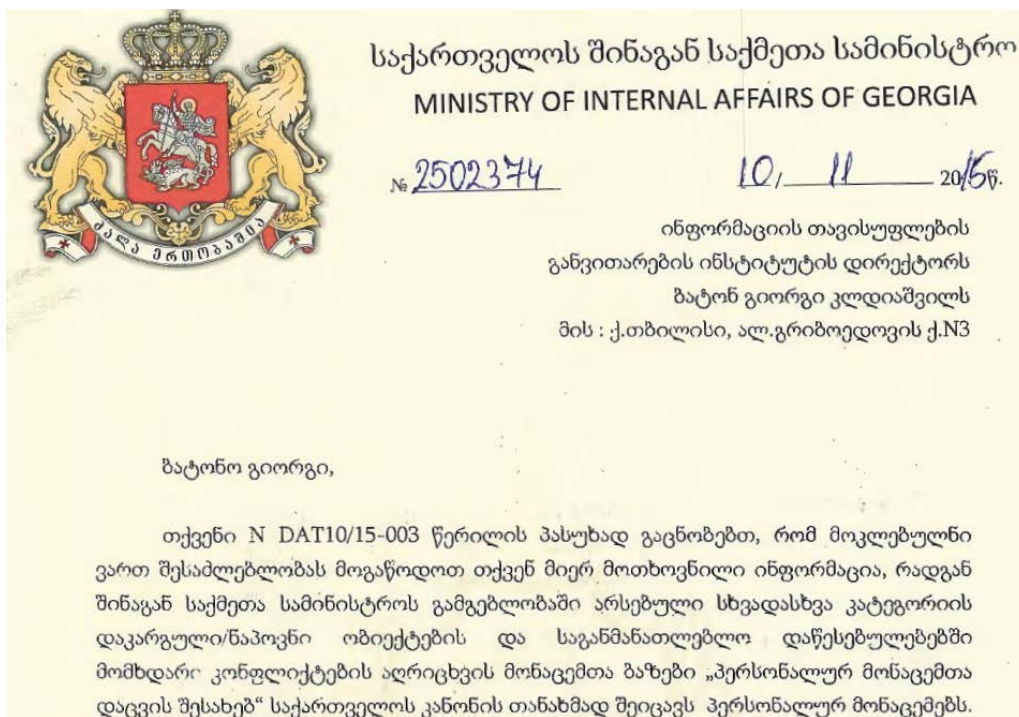 საქართველოს შინაგან საქმეთა სამინისტრო
MINISTRY OF INTERNAL AFFAIRS OF GEORGIA
№ 2502374 10, 11 2015წ.
ძალა ერთობაშია
ინფორმაციის თავისუფლების
განვითარების ინსტიტუტის დირექტორს
ბატონ გიორგი კლდიაშვილს
მის : ქ.თბილისი, ალ.გრიბოედოვის ქ.N3
ბატონო გიორგი,
თქვენი N DAT10/15-003 წერილის პასუხად გაცნობებთ, რომ მოკლებულნი
ვართ შესაძლებლობას მოგაწოდოთ თქვენ მიერ მოთხოვნილი ინფორმაცია, რადგან
შინაგან საქმეთა სამინისტროს გამგებლობაში არსებული სხვადასხვა კატეგორიის
დაკარგული/ნაპოვნი ობიექტების და საგანმანათლებლო დაწესებულებებში
მომხდარი კონფლიქტების აღრიცხვის მონაცემთა ბაზები „პერსონალურ მონაცემთა
დაცვის შესახებ“ საქართველოს კანონის თანახმად შეიცავს პერსონალურ მონაცემებს.